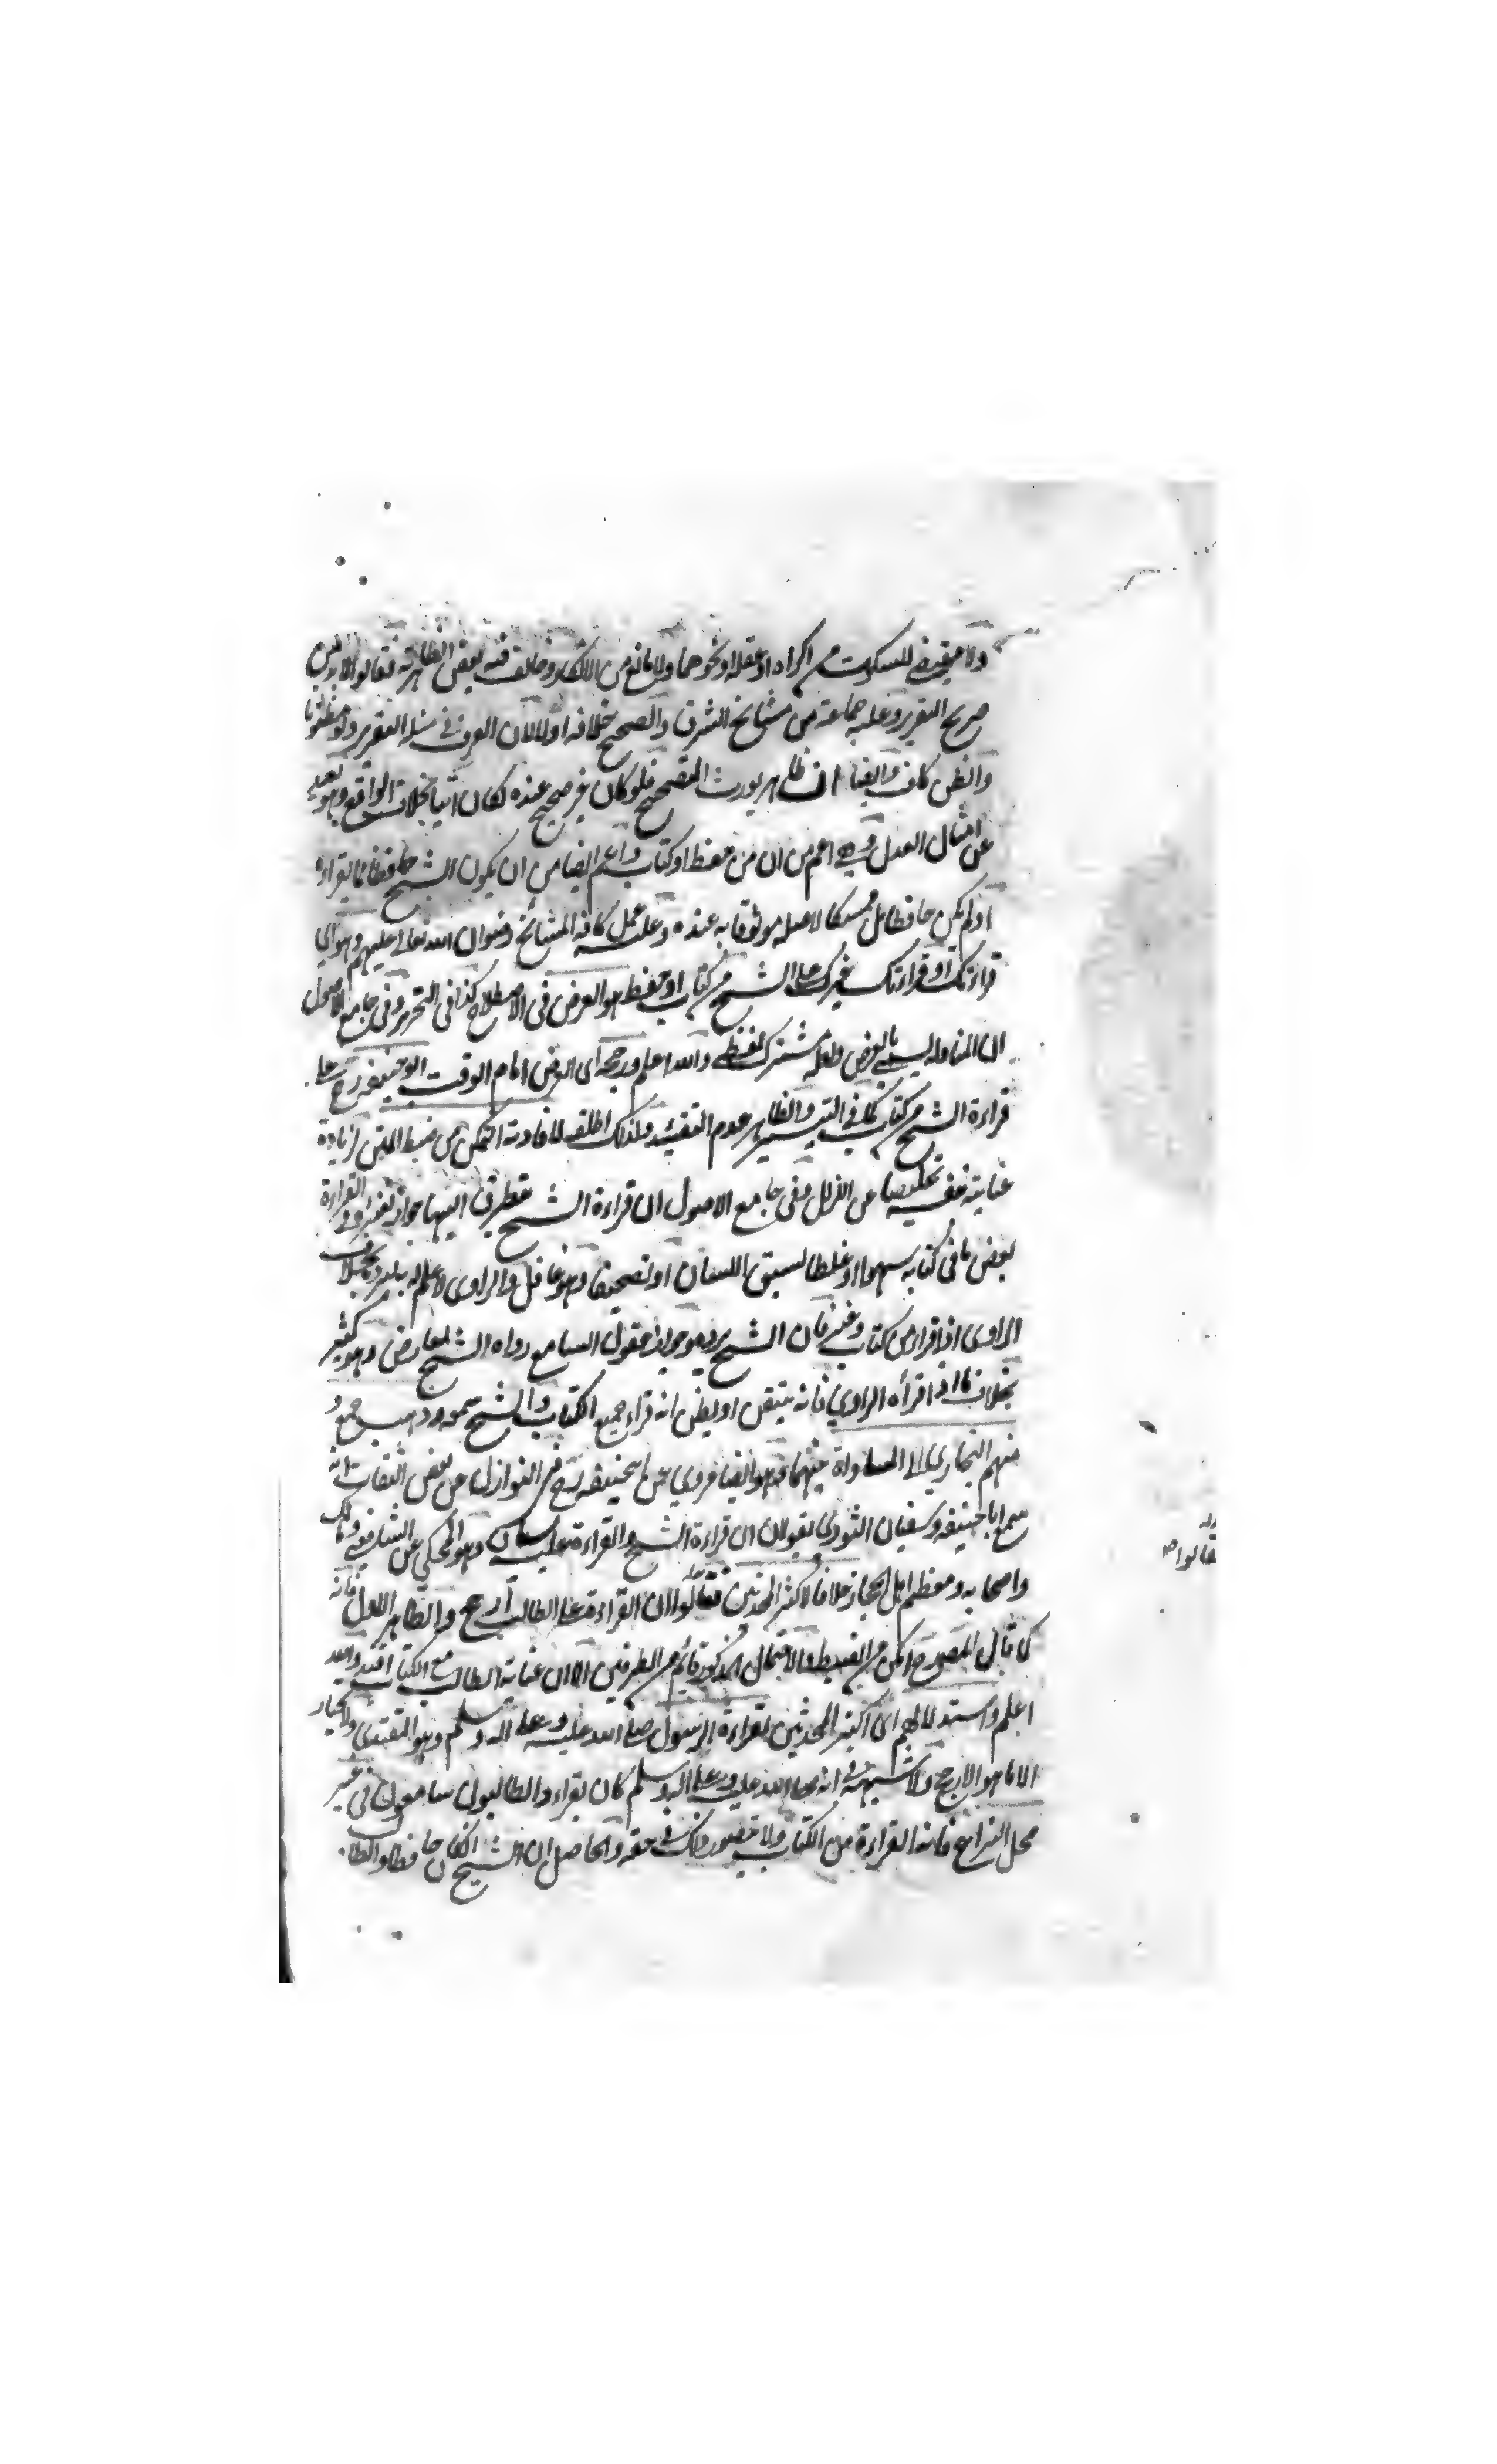 ولا مقتضى للسكوت من اكراه او غفلة او نحوهما ولا مانع من الانكار وخالف فيه بعض الظاهرية فقالوا لا بد من
صريح التقرير وعليه جماعة من مشايخ الشرق والصحيح خلافه اولا لان العرف في مثله التقرير ولو مظنونا
والظن كاف وايضا ان ظاهر يورث التصحيح فلو كان غير صحيح عنده لكان اتيا بخلاف الواقع وهو بعيد
عن امثال العدل وهي اعم من ان من حفظ او كتاب واعم ايضا من ان يكون الشيخ حافظا لما يقراء
او لم يكن حافظا بل ممسكا لاصله موثوقا به عنده وعليه عمل كافة المشايخ رضوان الله تعالى عليهم وهو اي
قراءتك او قراءتك غيرك على الشيخ من كتاب او حفظ هو العرض في الاصطلاح كذا في التحرير وفي جامع الاصول
ان المناولة يسمى بالعرض ولعله مشترك لفظي والله اعلم ورجحه اي العرض امام الوقت ابو حنيفة رح على
قراءة الشيخ من كتاب كما في التيسير والظاهر عدم التقييد ولذلك اطلقه لافادته التمكن من ضبط المتن لزيادة
عناية نفسه تخليصا عن الزلل وفي جامع الاصول ان قراءة الشيخ تطرق اليها جواز تغيره في القراءة
بعض ما في كتابه سهوا او غلطا لسبق اللسان او تصحيفا وهو غافل والراوي لا علم له بما يرد بخلاف
الراوي اذا قرا من كتاب وغيره فان الشيخ يرده وجواز عقول السامع رواه الشيخ لمعارض وهو كثير
بخلاف ما اذا قرأه الراوي فانه يتيقن او يظن انه قراء جميع الكتاب والشيخ سمعه وذهب جمع و
منهم البخاري الى المساواة بينهما وهو ايضا مروي عن ابيحنيفه رح في النوازل عن بعض الثقات انه
سمع ابا حنيفة وسفيان الثوري يقولان ان قراءة الشيخ والقراءة عليه سيان وهو المحكي عن الشافعي ومالك
واصحابه ومعظم اهل الحجاز خلافا لاكثر المحدثين فقالوا ان القراءة على الطالب ارجح والظاهر الاول فانه
كما قال المصرح امكن من الضبط والاحتمال المذكور قائم من الطرفين الا ان عناية الطالب مع الكتاب اشد والله
اعلم واستدلالهم اي اكثر المحدثين بقراءة الرسول صلى الله عليه وعلى اله وسلم وهو المقتدى ولا يختار
الا ما هو الارجح ولا شبهة في انه صلى الله عليه وعلى اله وسلم كان يقراء والطالبون سامعون في غير
محل النزاع فانه القراءة من الكتاب ولا تصور ذلك في حقه والحاصل ان الشيخ ان كان حافظا والطا